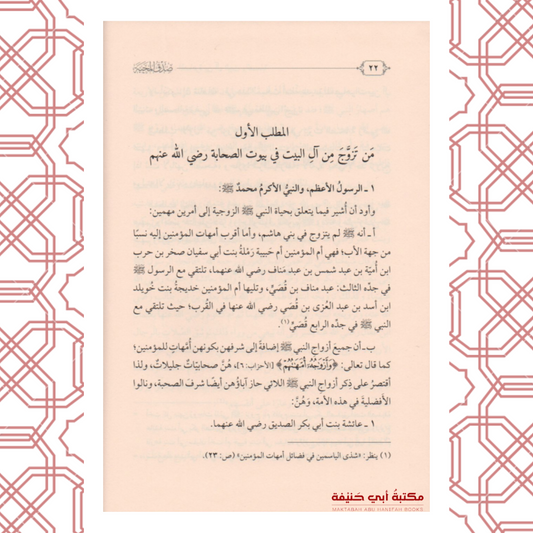 ٢٢ صِدْقُ المَحَبَّة
المطلب الأول
مَن تَزوَّجَ مِن آلِ البيت في بيوت الصحابة رضي الله عنهم
١ ـ الرسولُ الأعظم، والنبيُّ الأكرمُ محمدٌ ﷺ:
وأود أن أُشير فيما يتعلق بحياة النبي ﷺ الزوجية إلى أمرين مهمين:
أ ـ أنه ﷺ لم يتزوج في بني هاشم، وأما أقرب أمهات المؤمنين إليه نسبًا
من جهة الأب؛ فهي أم المؤمنين أم حَبِيبة رَمْلةُ بنت أبي سفيان صخر بن حرب
ابن أُميَّة بن عبد شمس بن عبد مَناف رضي الله عنهما، تلتقي مع الرسول ﷺ
في جدِّه الثالث: عبد مناف بن قُصَيٍّ، وتليها أم المؤمنين خديجةُ بنت خُويلد
ابن أسد بن عبد العُزى بن قُصي رضي الله عنها في القُرب؛ حيث تلتقي مع
النبي ﷺ في جدِّه الرابع قُصَيٍّ(١).
ب ـ أن جميعَ أزواجِ النبي ﷺ إضافةً إلى شرفهن بكونهن أُمَّهاتٍ للمؤمنين؛
كما قال تعالى: ﴿وَأَزْوَٰجُهُۥٓ أُمَّهَٰتُهُمْ﴾ [الأحزاب: ٦]، هُنَّ صحابيّاتٌ جليلاتٌ، ولذا
أقتصرُ على ذِكر أزواج النبي ﷺ اللاتي حاز آباؤُهن أيضًا شرفَ الصحبة، ونالوا
الأفضليةَ في هذه الأمة، وهُنَّ:
١ ـ عائشة بنت أبي بكر الصديق رضي الله عنهما.
(١) ينظر: «شذى الياسمين في فضائل أمهات المؤمنين» (ص: ٢٣).
مكتبةُ أبي حَنيْفة
MAKTABAH ABU HANEFAH BOOKS